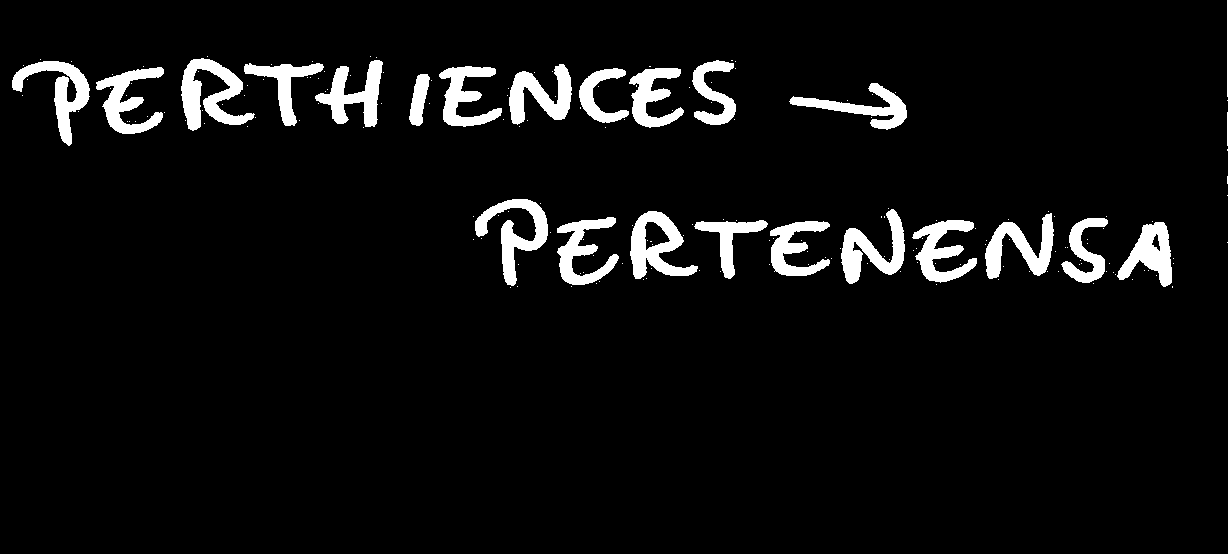 PERTHIENCES →
PERTENENSA